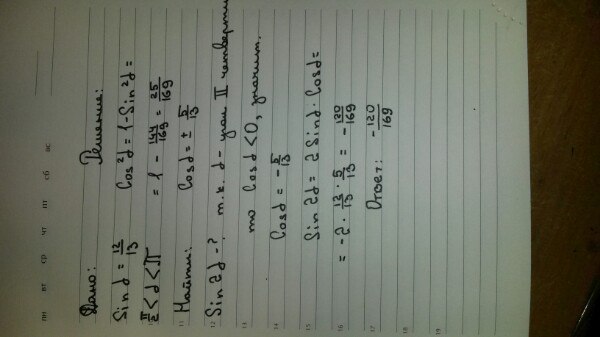 Дано:
Sin α = 12/13
π/2 < α < π
Найти:
Sin 2α - ?
Решение:
Cos²α = 1 - Sin²α =
= 1 - 144/169 = 25/169
Cos α = ± 5/13
т.к. α - угол II четверти
то Cos α < 0, значит,
Cos α = - 5/13
Sin 2α = 2 Sin α · Cos α =
= -2 · 12/13 · 5/13 = - 120/169
Ответ: - 120/169
пн вт ср чт пт сб вс
11
12
13
14
15
16
17
18
19